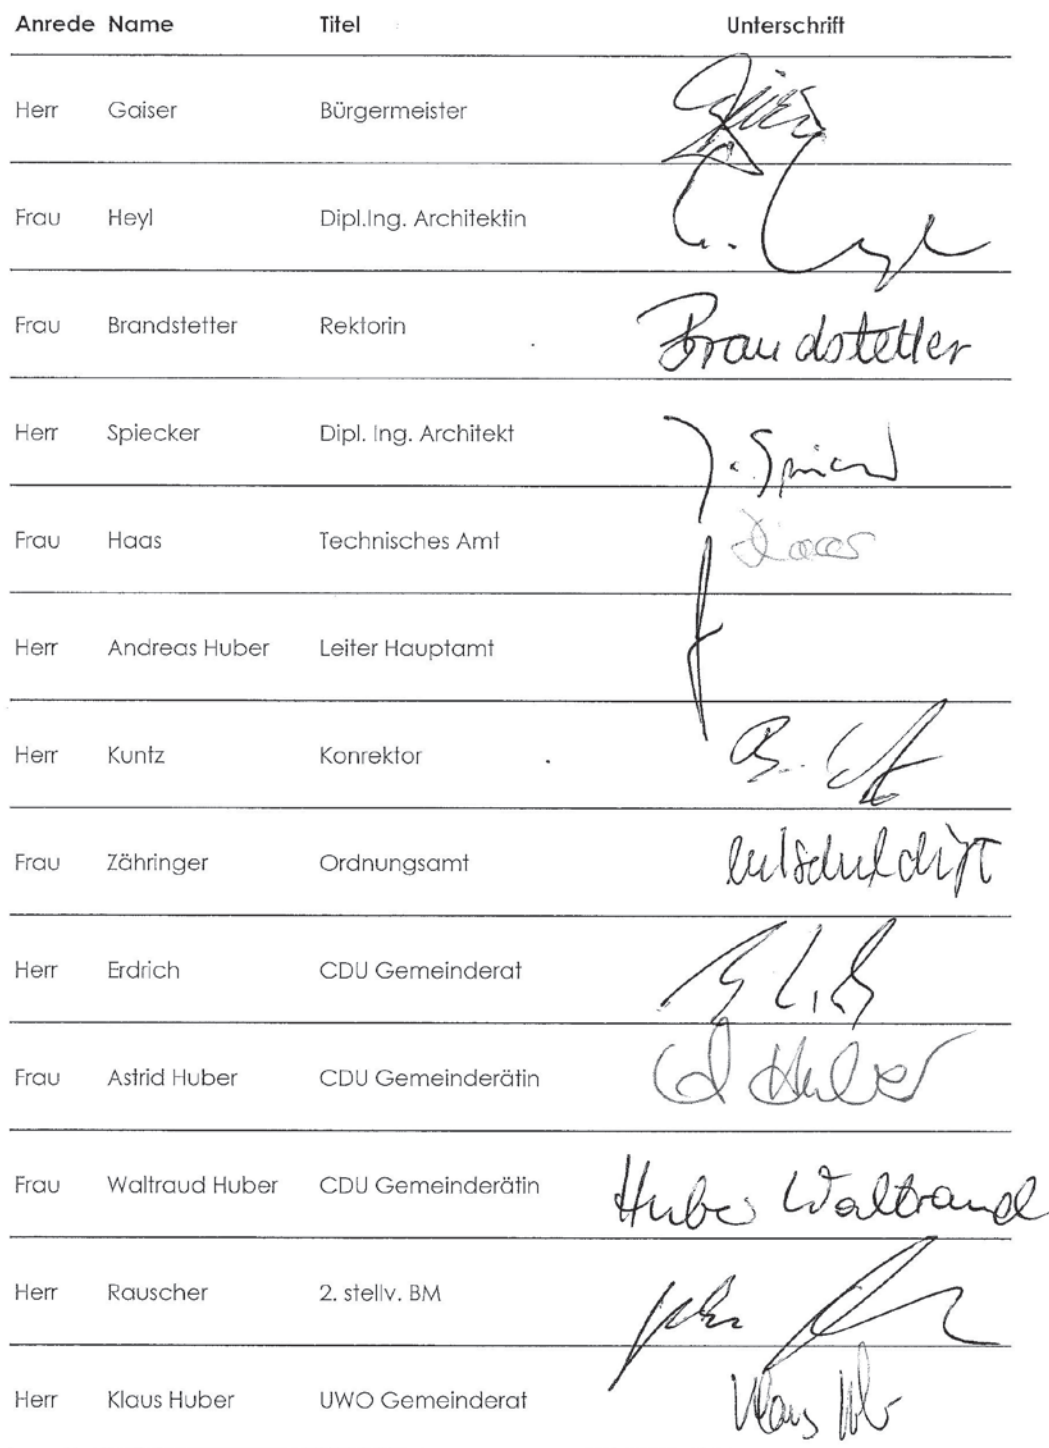 Anrede Name Titel Unterschrift
Herr Gaiser Bürgermeister
Frau Heyl Dipl.Ing. Architektin
Frau Brandstetter Rektorin Brandstetter
Herr Spiecker Dipl. Ing. Architekt
Frau Haas Technisches Amt Haas
Herr Andreas Huber Leiter Hauptamt
Herr Kuntz Konrektor
Frau Zähringer Ordnungsamt entschuldigt
Herr Erdrich CDU Gemeinderat
Frau Astrid Huber CDU Gemeinderätin A Huber
Frau Waltraud Huber CDU Gemeinderätin Huber Waltraud
Herr Rauscher 2. stellv. BM
Herr Klaus Huber UWO Gemeinderat Klaus